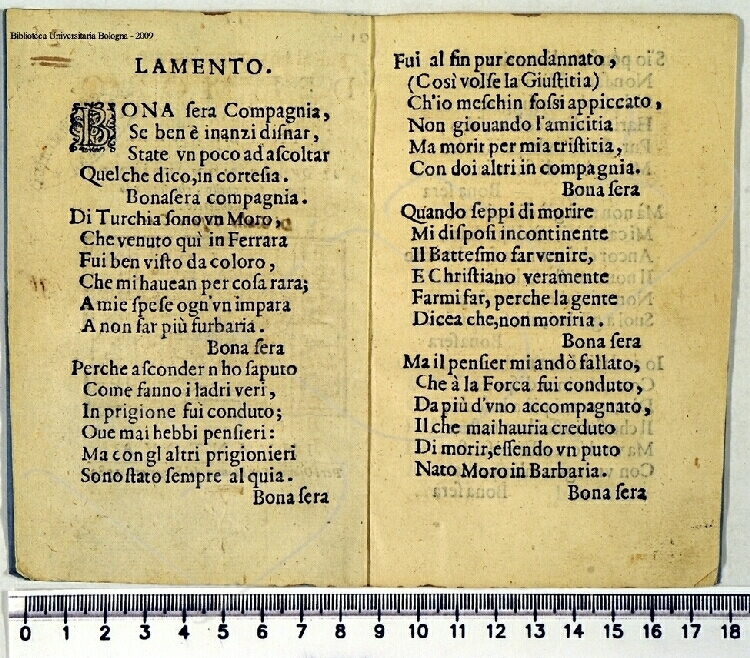 Biblioteca Universitaria Bologna - 2009
LAMENTO.
BONA ſera Compagnia,
Se ben è inanzi diſnar,
State vn poco ad aſcoltar
Quel che dico, in corteſia.
Bonaſera compagnia.
Di Turchia ſono vn Moro,
Che venuto quì in Ferrara
Fui ben viſto da coloro,
Che mi hauean per coſa rara;
A mie ſpeſe ogn'vn impara
A non far più furbaria.
Bona ſera
Perche aſconder n ho ſaputo
Come fanno i ladri veri,
In prigione fui conduto;
Oue mai hebbi penſieri:
Ma con gl altri prigionieri
Sono ſtato ſempre al quia.
Bona ſera
Fui al fin pur condannato,
(Così volſe la Giuſtitia)
Ch'io meſchin foſsi appiccato,
Non giouando l'amicitia
Ma morir per mia triſtitia,
Con doi altri in compagnia.
Bona ſera
Quando ſeppi di morire
Mi diſpoſi incontinente
Il Batteſmo far venire,
E Chriſtiano veramente
Farmi far, perche la gente
Dicea che, non moriria.
Bona ſera
Ma il penſier mi andò fallato,
Che à la Forca fui conduto,
Da più d'vno accompagnato,
Il che mai hauria creduto
Di morir, eſſendo vn puto
Nato Moro in Barbaria.
Bona ſera
0 1 2 3 4 5 6 7 8 9 10 11 12 13 14 15 16 17 18